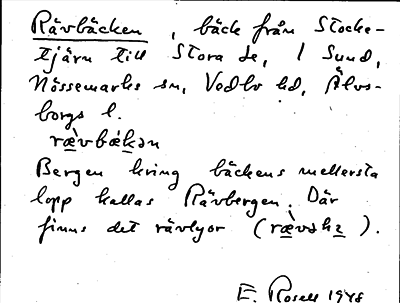 Rävbäcken, bäck från Stocke-
tjärn till Stora Le, i Sund,
Nössemarks sn, Vedbo hd, Älvs-
borgs l.
rævbæ̀kən
Bergen kring bäckens mellersta
lopp kallas Rävbergen. Där
finns det rävlyor (
).
E. Rosell 1948